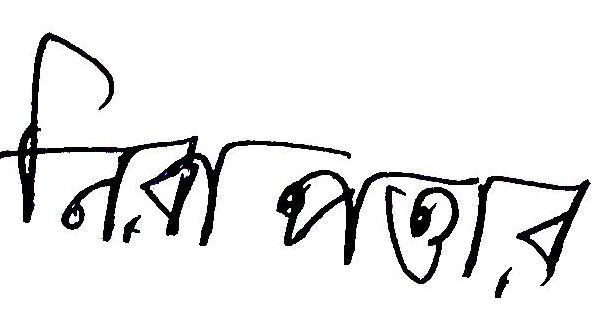 নিরাপত্তার